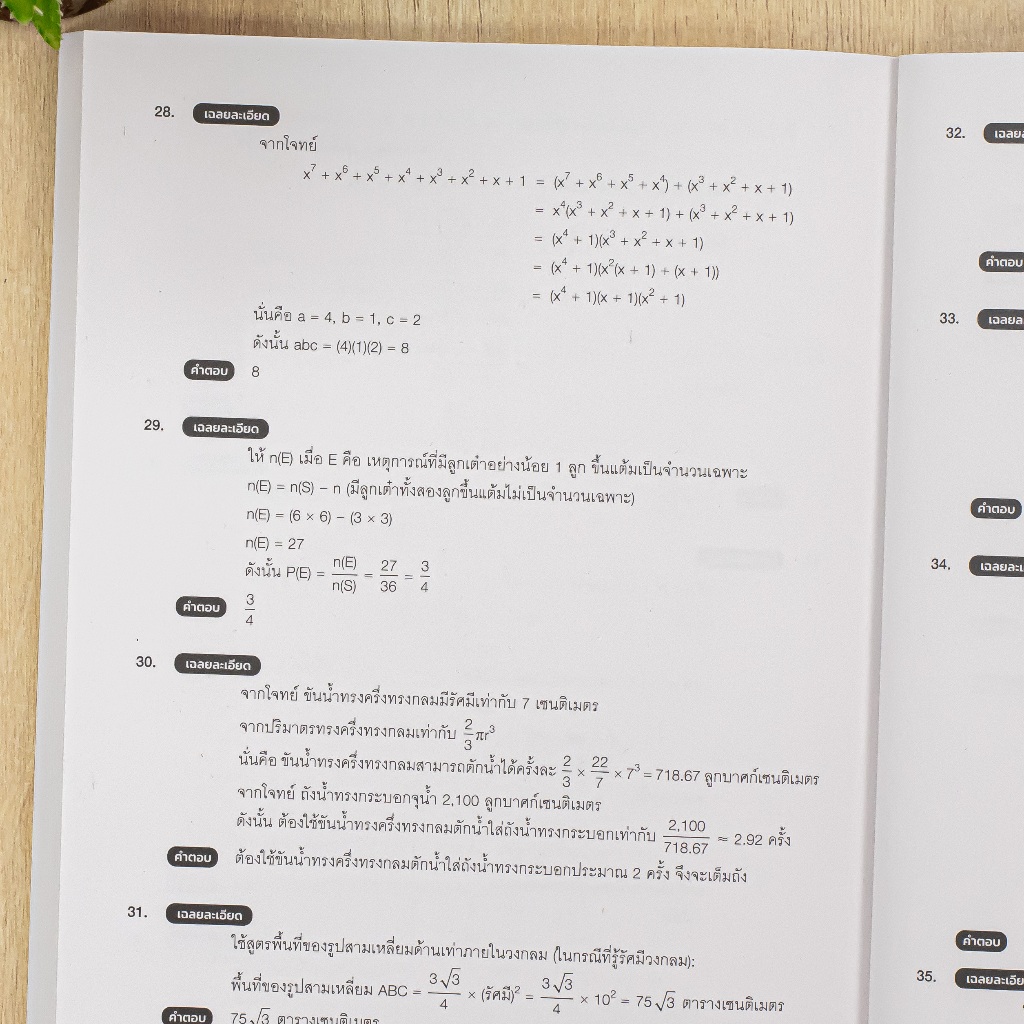 28. เฉลยละเอียด
จากโจทย์
x⁷ + x⁶ + x⁵ + x⁴ + x³ + x² + x + 1 = (x⁷ + x⁶ + x⁵ + x⁴) + (x³ + x² + x + 1)
= x⁴(x³ + x² + x + 1) + (x³ + x² + x + 1)
= (x⁴ + 1)(x³ + x² + x + 1)
= (x⁴ + 1)(x²(x + 1) + (x + 1))
= (x⁴ + 1)(x + 1)(x² + 1)
นั่นคือ a = 4, b = 1, c = 2
ดังนั้น abc = (4)(1)(2) = 8
คำตอบ 8
29. เฉลยละเอียด
ให้ n(E) เมื่อ E คือ เหตุการณ์ที่มีลูกเต๋าอย่างน้อย 1 ลูก ขึ้นแต้มเป็นจำนวนเฉพาะ
n(E) = n(S) – n (มีลูกเต๋าทั้งสองลูกขึ้นแต้มไม่เป็นจำนวนเฉพาะ)
n(E) = (6 × 6) – (3 × 3)
n(E) = 27
ดังนั้น P(E) = n(E)/n(S) = 27/36 = 3/4
คำตอบ 3/4
30. เฉลยละเอียด
จากโจทย์ ขันน้ำทรงครึ่งทรงกลมมีรัศมีเท่ากับ 7 เซนติเมตร
จากปริมาตรทรงครึ่งทรงกลมเท่ากับ 2/3 πr³
นั่นคือ ขันน้ำทรงครึ่งทรงกลมสามารถตักน้ำได้ครั้งละ 2/3 × 22/7 × 7³ = 718.67 ลูกบาศก์เซนติเมตร
จากโจทย์ ถังน้ำทรงกระบอกจุน้ำ 2,100 ลูกบาศก์เซนติเมตร
ดังนั้น ต้องใช้ขันน้ำทรงครึ่งทรงกลมตักน้ำใส่ถังน้ำทรงกระบอกเท่ากับ 2,100/718.67 ≈ 2.92 ครั้ง
คำตอบ ต้องใช้ขันน้ำทรงครึ่งทรงกลมตักน้ำใส่ถังน้ำทรงกระบอกประมาณ 2 ครั้ง จึงจะเต็มถัง
31. เฉลยละเอียด
ใช้สูตรพื้นที่ของรูปสามเหลี่ยมด้านเท่าภายในวงกลม (ในกรณีที่รู้รัศมีวงกลม):
พื้นที่ของรูปสามเหลี่ยม ABC = 3√3/4 × (รัศมี)² = 3√3/4 × 10² = 75√3 ตารางเซนติเมตร
คำตอบ 75√3 ตารางเซนติเมตร
32.
คำตอบ
33.
คำตอบ
34.
คำตอบ
35.